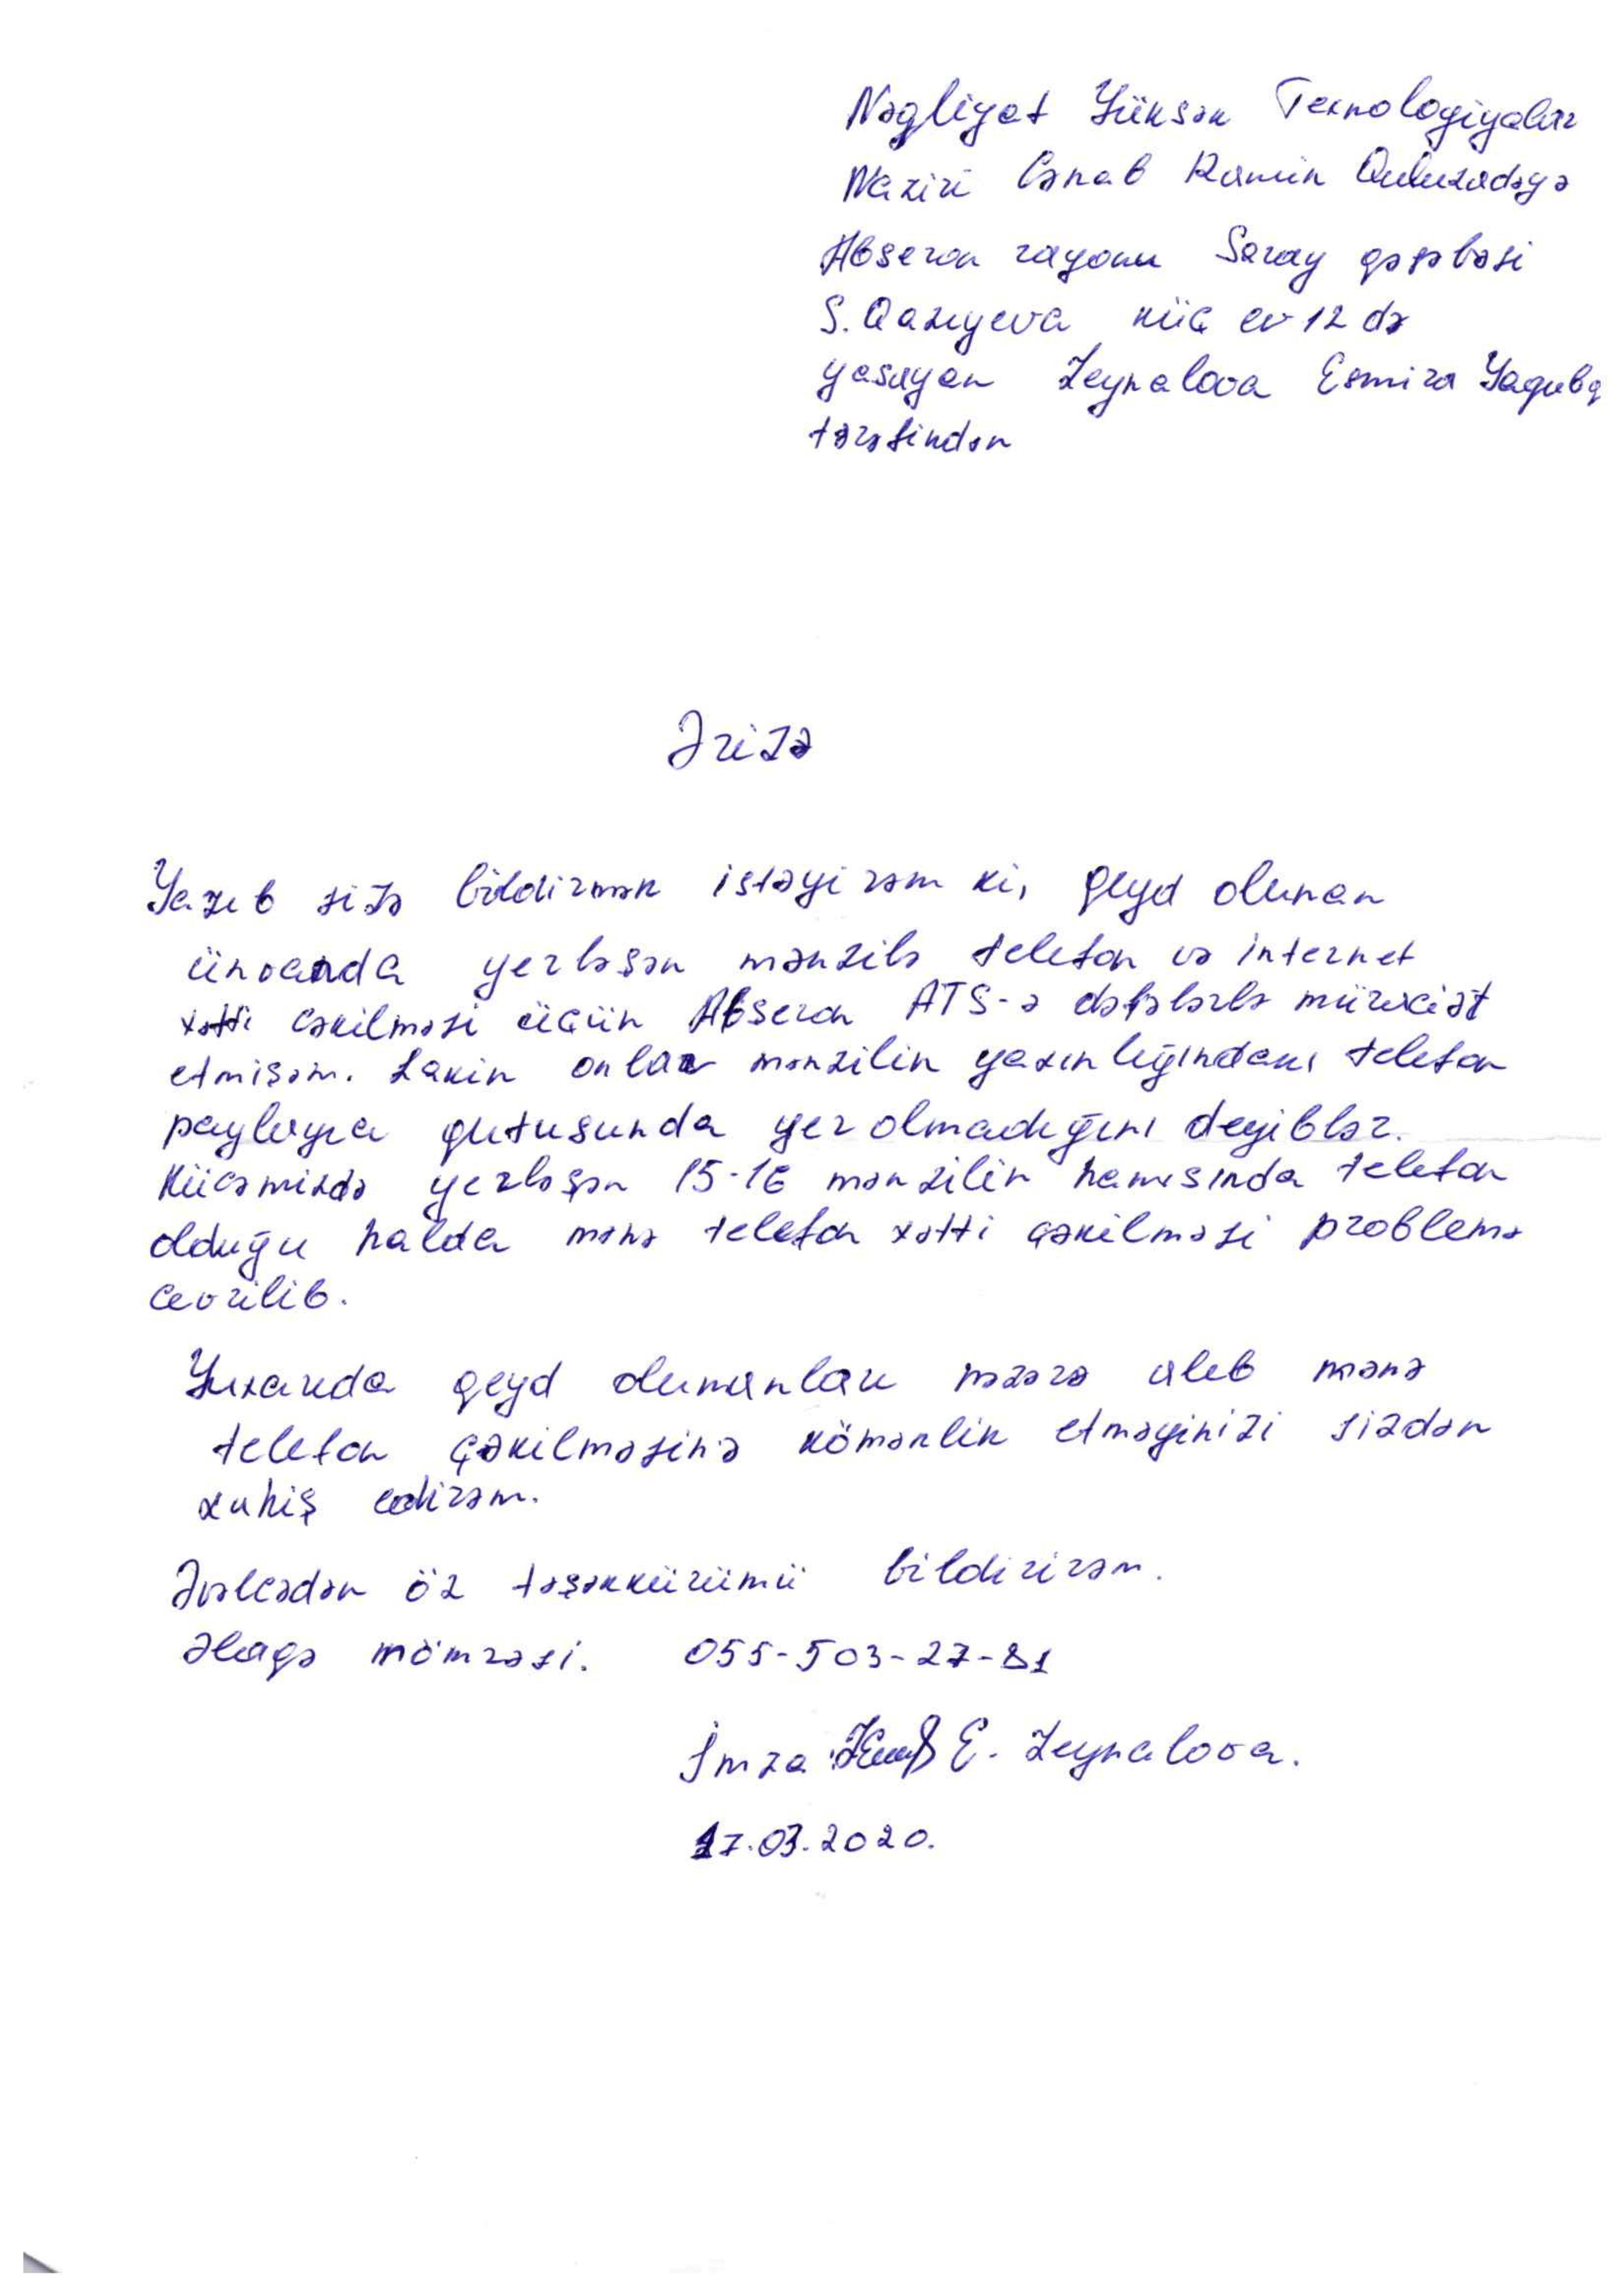 Nəqliyat Yüksək Texnologiyalar
Naziri Cənab Ramin Quluzadəyə
Abşeron rayonu Saray qəsəbəsi
S. Qazıyeva küç ev 12 də
yaşayan Zeynalova Esmira Yaqubq
tərəfindən
Ərizə
Yazıb sizə bildirmək istəyirəm ki, qeyd olunan
ünvanda yerləşən mənzilə telefon və internet
xətti çəkilməsi üçün Abşeron ATS-ə dəfələrlə müraciət
etmişəm. Lakin onlar mənzilin yaxınlığındakı telefon
paylayıcı qutusunda yer olmadığını deyiblər.
Küçəmizdə yerləşən 15-16 mənzilin hamısında telefon
olduğu halda mənə telefon xətti çəkilməsi problemə
çevrilib.
Yuxarıda qeyd olunanları nəzərə alıb mənə
telefon çəkilməsinə köməklik etməyinizi sizdən
xahiş edirəm.
Əvəlcədən öz təşəkkürümü bildirirəm.
Əlaqə nömrəsi. 055-503-27-81
İmza E. Zeynalova.
17.03.2020.